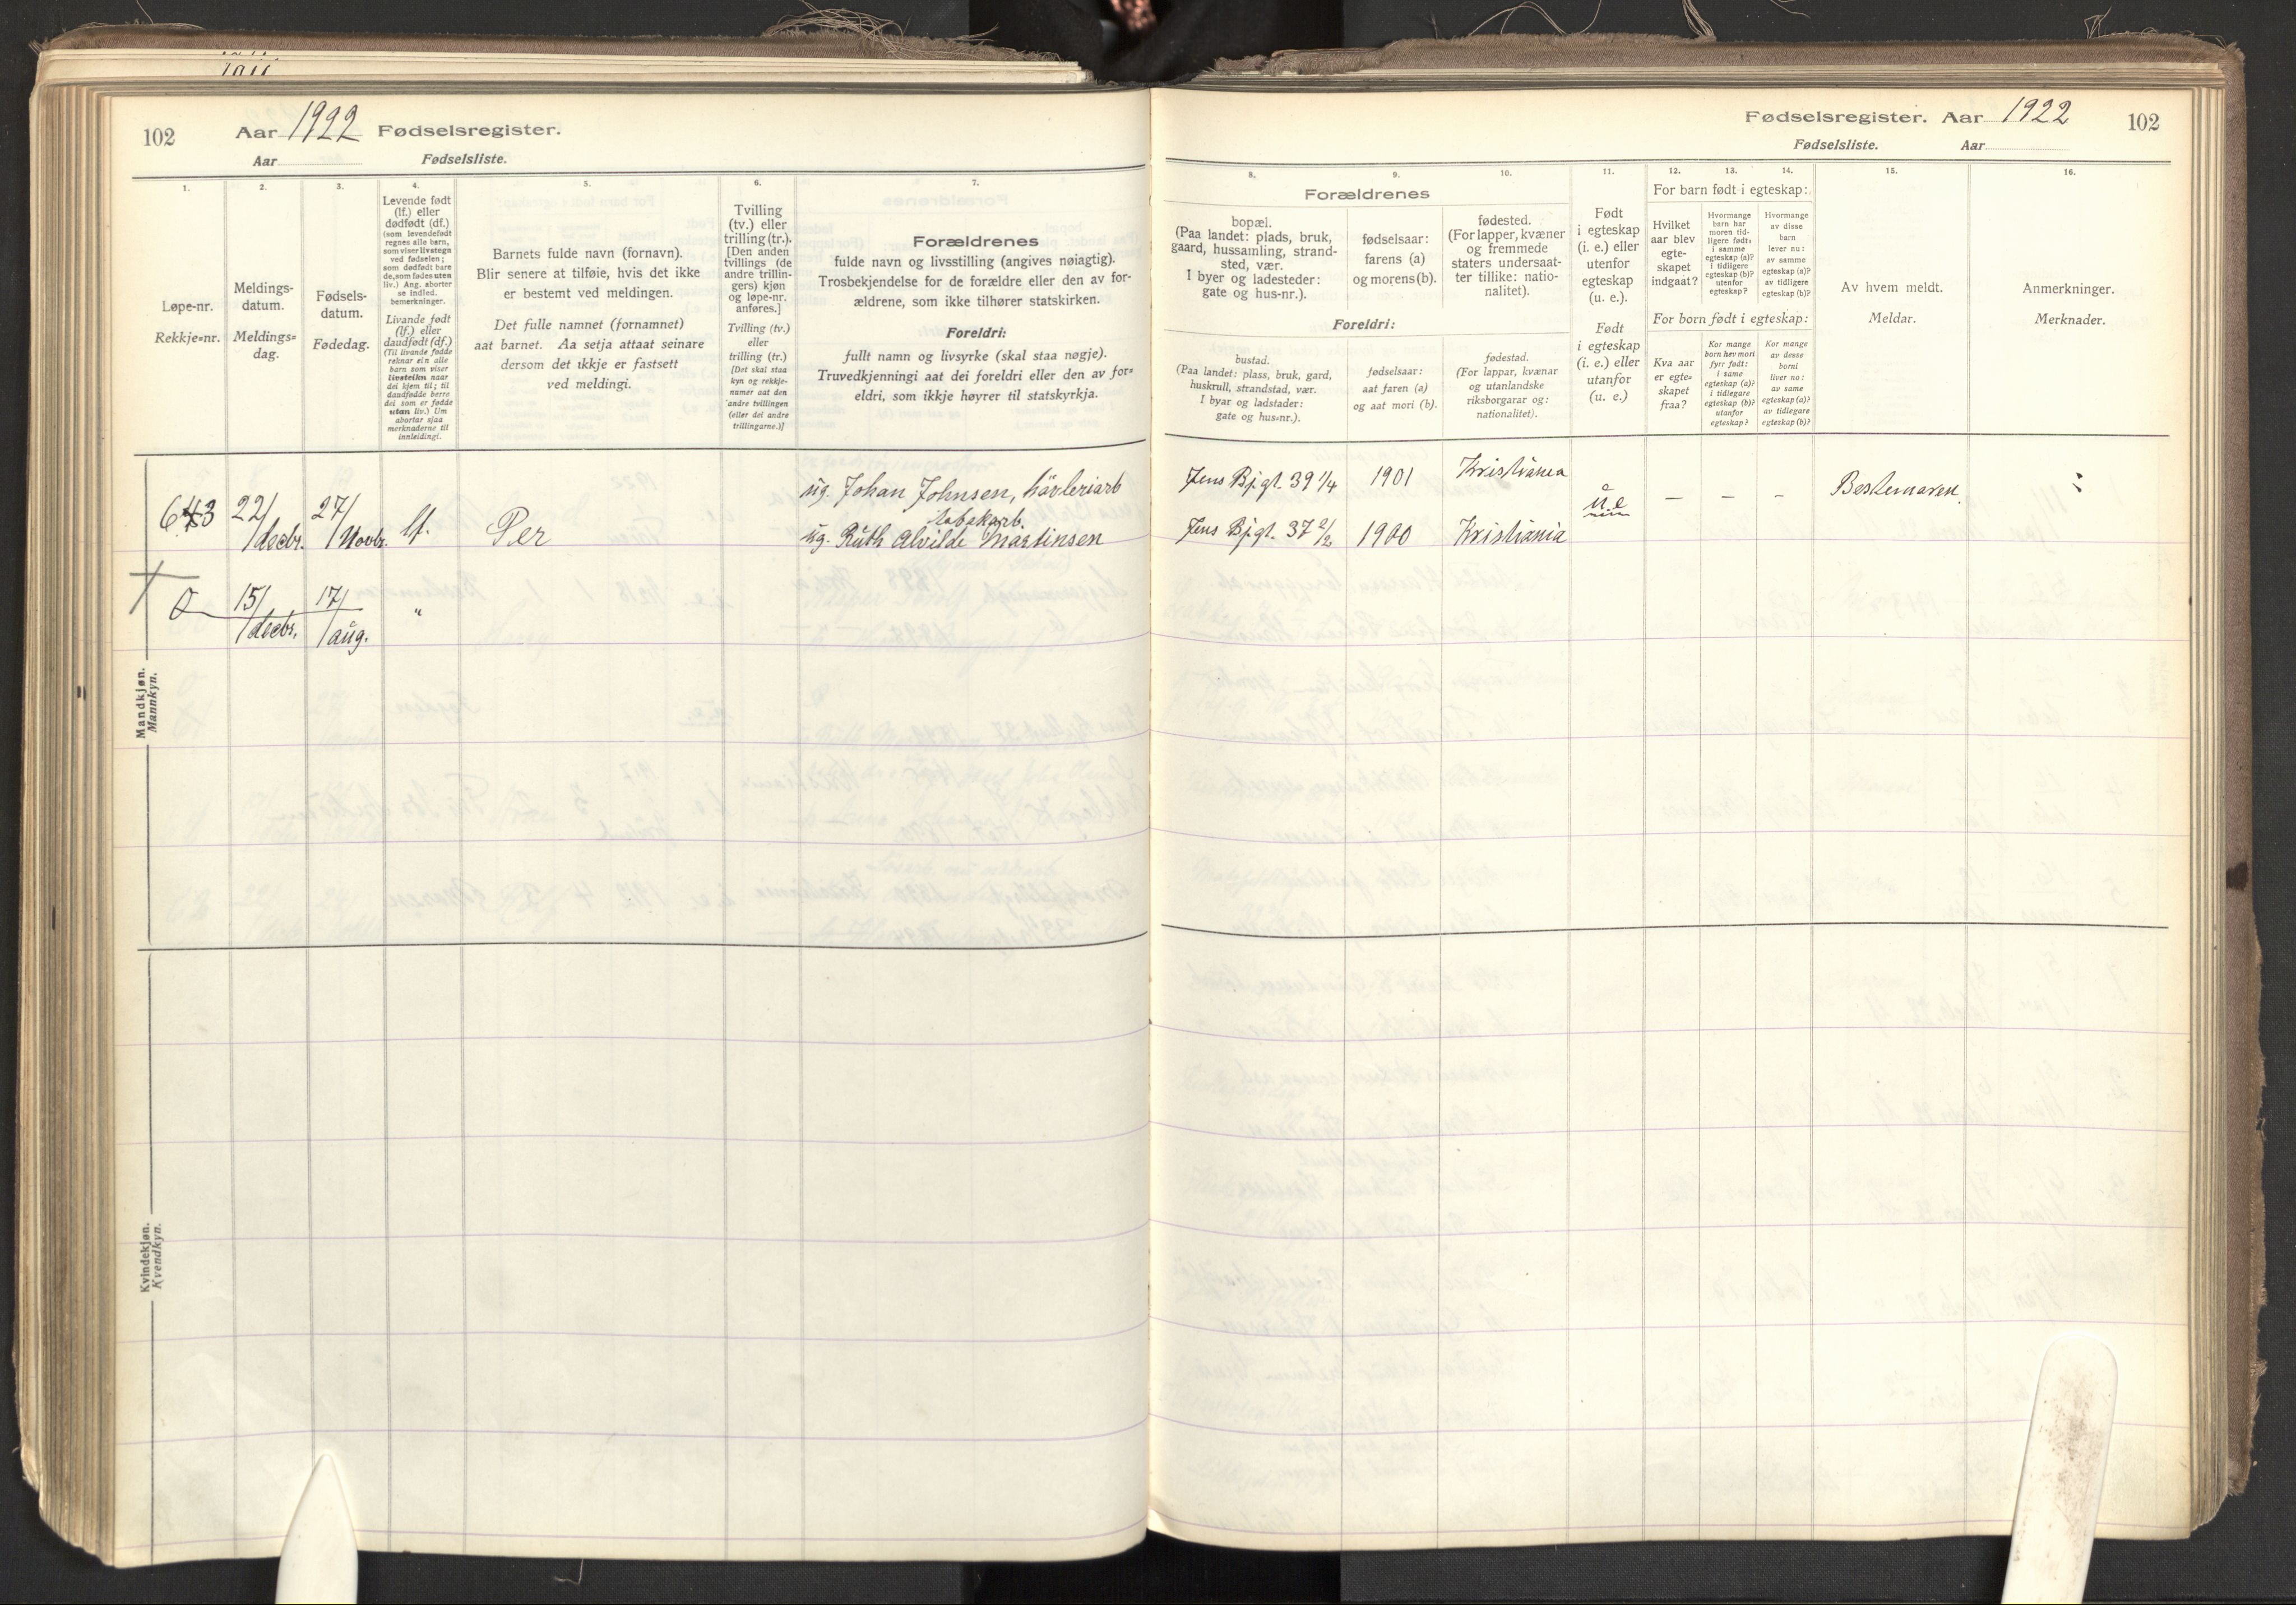 102 Aar 1922 Fødselsregister.
Aar Fødselsliste.
1. 2. 3. 4. 5. 6. 7.
Løpe-nr.
Rekkje-nr.
Meldings-
datum.
Meldings-
dag.
Fødsels-
datum.
Fødedag.
Levende født
(lf.) eller
dødfødt (df.)
(som levendefødt
regnes alle barn,
som viser livstegn
ved fødselen;
som dødfødt bare
de, som fødes uten
liv.) Ang. aborter
se indled.
bemerkninger.
Livande født
(lf.) eller
daudfødt (df.)
(Til livande fødde
reknar ein alle
barn som viser
livsteikn naar
dei kjem til; til
daudfødde berre
dei som er fødde
utan liv.) Um
abortar sjaa
merknaderne til
innleidingi.
Barnets fulde navn (fornavn).
Blir senere at tilføie, hvis det ikke
er bestemt ved meldingen.
Det fulle namnet (fornamnet)
aat barnet. Aa setja attaat seinare
dersom det ikkje er fastsett
ved meldingi.
Tvilling
(tv.) eller
trilling (tr.).
[Den anden
tvillings (de
andre trillin-
gers) kjøn
og løpe-nr.
anføres.]
Tvilling (tv.)
eller
trilling (tr.)
[Det skal staa
kyn og rekkje-
numer aat den
andre tvillingen
(eller dei andre
trillingarne.)]
Forældrenes
fulde navn og livsstilling (angives nøiagtig).
Trosbekjendelse for de forældre eller den av for-
ældrene, som ikke tilhører statskirken.
Foreldri:
fullt namn og livsyrke (skal staa nøgje).
Truvedkjenningi aat dei foreldri eller den av for-
eldri, som ikkje høyrer til statskyrkja.
643 22/decbr. 27/Novbr. lf. Per
ug. Johan Johnsen, høvleriarb
tobakarb.
ug. Ruth Alvilde Martinsen
0 15/decbr. 17/aug. "
Mandkjøn.
Mannkyn.
Kvindekjøn.
Kvendkyn.
Fødselsregister. Aar 1922 102
Fødselsliste. Aar
8. 9. 10. 11. 12. 13. 14. 15. 16.
Forældrenes
bopæl.
(Paa landet: plads, bruk,
gaard, hussamling, strand-
sted, vær.
I byer og ladesteder:
gate og hus-nr.).
fødselsaar:
farens (a)
og morens (b).
fødested.
(For lapper, kvæner
og fremmede
staters undersaat-
ter tillike: natio-
nalitet).
Foreldri:
bustad.
(Paa landet: plass, bruk, gard,
huskrull, strandstad, vær.
I byar og ladstader:
gate og hus-nr.).
fødselsaar:
aat faren (a)
og aat mori (b).
fødestad.
(For lappar, kvænar
og utanlandske
riksborgarar og:
nationalitet).
Født
i egteskap
(i. e.) eller
utenfor
egteskap
(u. e.).
Født
i egteskap
(i. e.) eller
utanfor
(u. e.)
For barn født i egteskap:
Hvilket
aar blev
egte-
skapet
indgaat?
Hvormange
barn har
moren tid-
ligere født:
i samme
egteskap (a)?
i tidligere
egteskap (b)?
utenfor
egteskap?
Hvormange
av disse
barn
lever nu:
av samme
egteskap (a)?
av tidligere
egteskap (b)?
For born født i egteskap:
Kva aar
er egte-
skapet
fraa?
Kor mange
born hev mori
fyrr født:
i same
egteskap (a)?
i tidlegare
egteskap (b)?
utanfor
egteskap?
Kor mange
av desse
borni
liver no:
av same
egteskap (a)?
av tidlegare
egteskap (b)?
Av hvem meldt.
Meldar.
Anmerkninger.
Merknader.
Jens Bj.gt. 39 1/4 1901 Kristiania
u.e – – – Bestemoren.
Jens Bj.gt. 37 2/2 1900 Kristiania